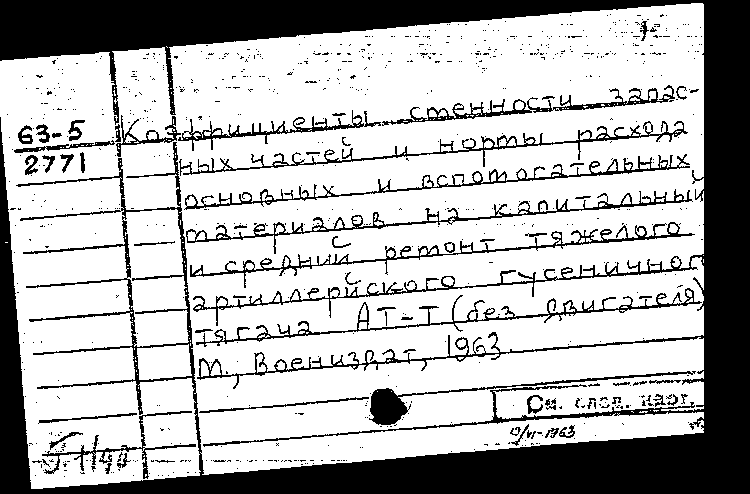 63-5 Коэффициенты стенности запас-
2771 ных частей и нормы расхода
основных и вспомогательных
материалов на капитальный
и средний ремонт тяжелого
артиллерийского гусеничного
тягача АТ-Т (без двигателя)
М., Воениздат, 1963.
См. след. карт.
9/VI-1963